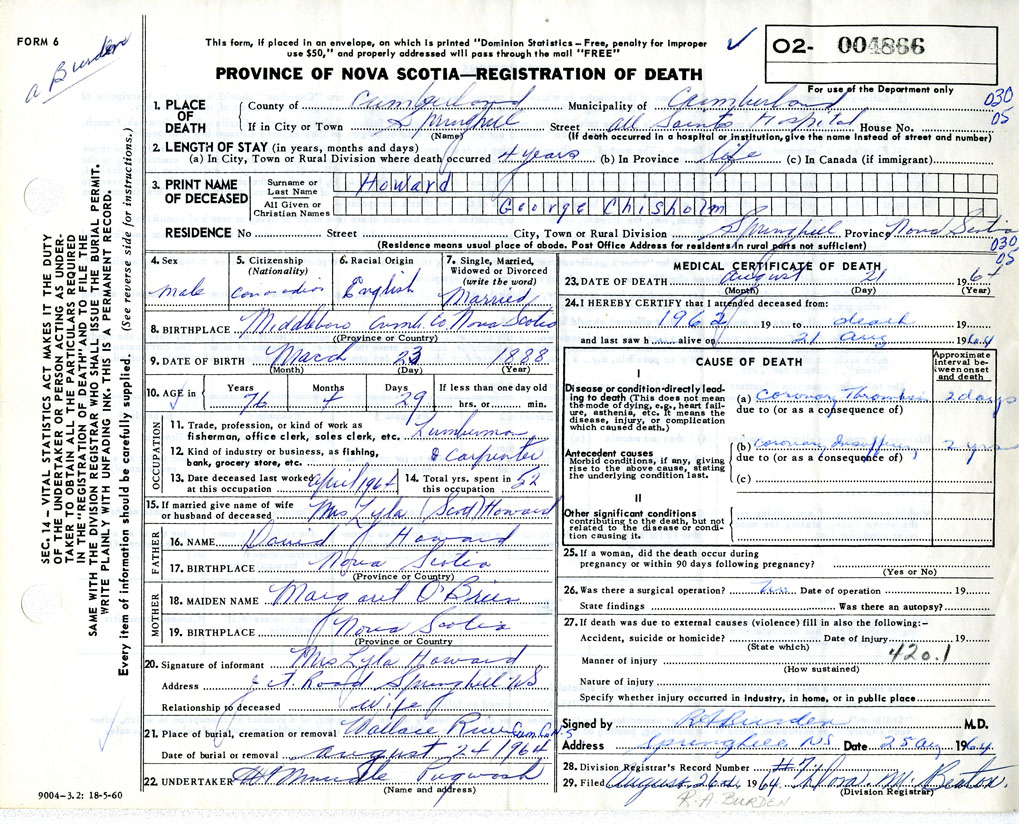 FORM 6
a Burden
This form, if placed in an envelope, on which is printed "Dominion Statistics – Free, penalty for improper
use $50," and properly addressed will pass through the mail "FREE"
O2- 004866
For use of the Department only
PROVINCE OF NOVA SCOTIA—REGISTRATION OF DEATH
SEC. 14 – VITAL STATISTICS ACT MAKES IT THE DUTY
OF THE UNDERTAKER OR PERSON ACTING AS UNDER-
TAKER TO OBTAIN ALL THE PARTICULARS REQUIRED
IN THE "REGISTRATION OF DEATH" AND TO FILE THE
SAME WITH THE DIVISION REGISTRAR WHO SHALL ISSUE THE BURIAL PERMIT.
WRITE PLAINLY WITH UNFADING INK. THIS IS A PERMANENT RECORD.
Every item of information should be carefully supplied. (See reverse side for instructions.)
1. PLACE OF DEATH County of Cumberland Municipality of Cumberland 030 05
If in City or Town Springhill Street All Saints Hospital House No.
(Name) (If death occurred in a hospital or institution, give the name instead of street and number)
2. LENGTH OF STAY (in years, months and days)
(a) In City, Town or Rural Division where death occurred 4 years (b) In Province life (c) In Canada (if immigrant)
3. PRINT NAME OF DECEASED Surname or Last Name Howard
All Given or Christian Names George Chisholm
RESIDENCE No Street City, Town or Rural Division Springhill Province Nova Scotia
(Residence means usual place of abode. Post Office Address for residents in rural parts not sufficient) 030 05
4. Sex Male
5. Citizenship (Nationality) Canadian
6. Racial Origin English
7. Single, Married, Widowed or Divorced (write the word) Married
8. BIRTHPLACE Middleboro Cumb. Co. Nova Scotia
(Province or Country)
9. DATE OF BIRTH March 23 1888
(Month) (Day) (Year)
10. AGE in Years 76 Months 4 Days 29 If less than one day old hrs. or min.
OCCUPATION
11. Trade, profession, or kind of work as
fisherman, office clerk, sales clerk, etc. Lumberman
12. Kind of industry or business, as fishing,
bank, grocery store, etc. & Carpenter
13. Date deceased last worked at this occupation April 1964 14. Total yrs. spent in this occupation 52
15. If married give name of wife or husband of deceased Mrs Lyla (Scott) Howard
FATHER
16. NAME David J Howard
17. BIRTHPLACE Nova Scotia
(Province or Country)
MOTHER
18. MAIDEN NAME Margaret O'Brien
19. BIRTHPLACE Nova Scotia
(Province or Country)
20. Signature of informant Mrs Lyla Howard
Address Road Springhill NS
Relationship to deceased wife
21. Place of burial, cremation or removal Wallace River Cum. Co. N.S
Date of burial or removal August 24 1964
22. UNDERTAKER Pugwash
(Name and address)
9004–3.2: 18-5-60
MEDICAL CERTIFICATE OF DEATH
23. DATE OF DEATH August 21 1964
(Month) (Day) (Year)
24. I HEREBY CERTIFY that I attended deceased from:
1962 19 to death 19
and last saw h alive on 21 Aug 1964
CAUSE OF DEATH
Approximate interval between onset and death
I
Disease or condition directly lead-
ing to death (This does not mean
the mode of dying, e.g., heart fail-
ure, asthenia, etc. It means the
disease, injury, or complication
which caused death.)
(a) Coronary Thrombosis 2 days
due to (or as a consequence of)
Antecedent causes
Morbid conditions, if any, giving
rise to the above cause, stating
the underlying condition last.
(b) Coronary Insufficiency 2 yrs
due to (or as a consequence of)
(c)
II
Other significant conditions
contributing to the death, but not
related to the disease or condi-
tion causing it.
25. If a woman, did the death occur during
pregnancy or within 90 days following pregnancy?
(Yes or No)
26. Was there a surgical operation? no Date of operation 19
State findings Was there an autopsy?
27. If death was due to external causes (violence) fill in also the following:–
Accident, suicide or homicide? Date of injury 19
(State which) 420.1
Manner of injury
(How sustained)
Nature of injury
Specify whether injury occurred in industry, in home, or in public place
Signed by RABurden M.D.
Address Springhill NS Date 25 Aug 1964
28. Division Registrar's Record Number #71
29. Filed August 26th 1964 Flora M. Beaton.
(Division Registrar)
R.A BURDEN